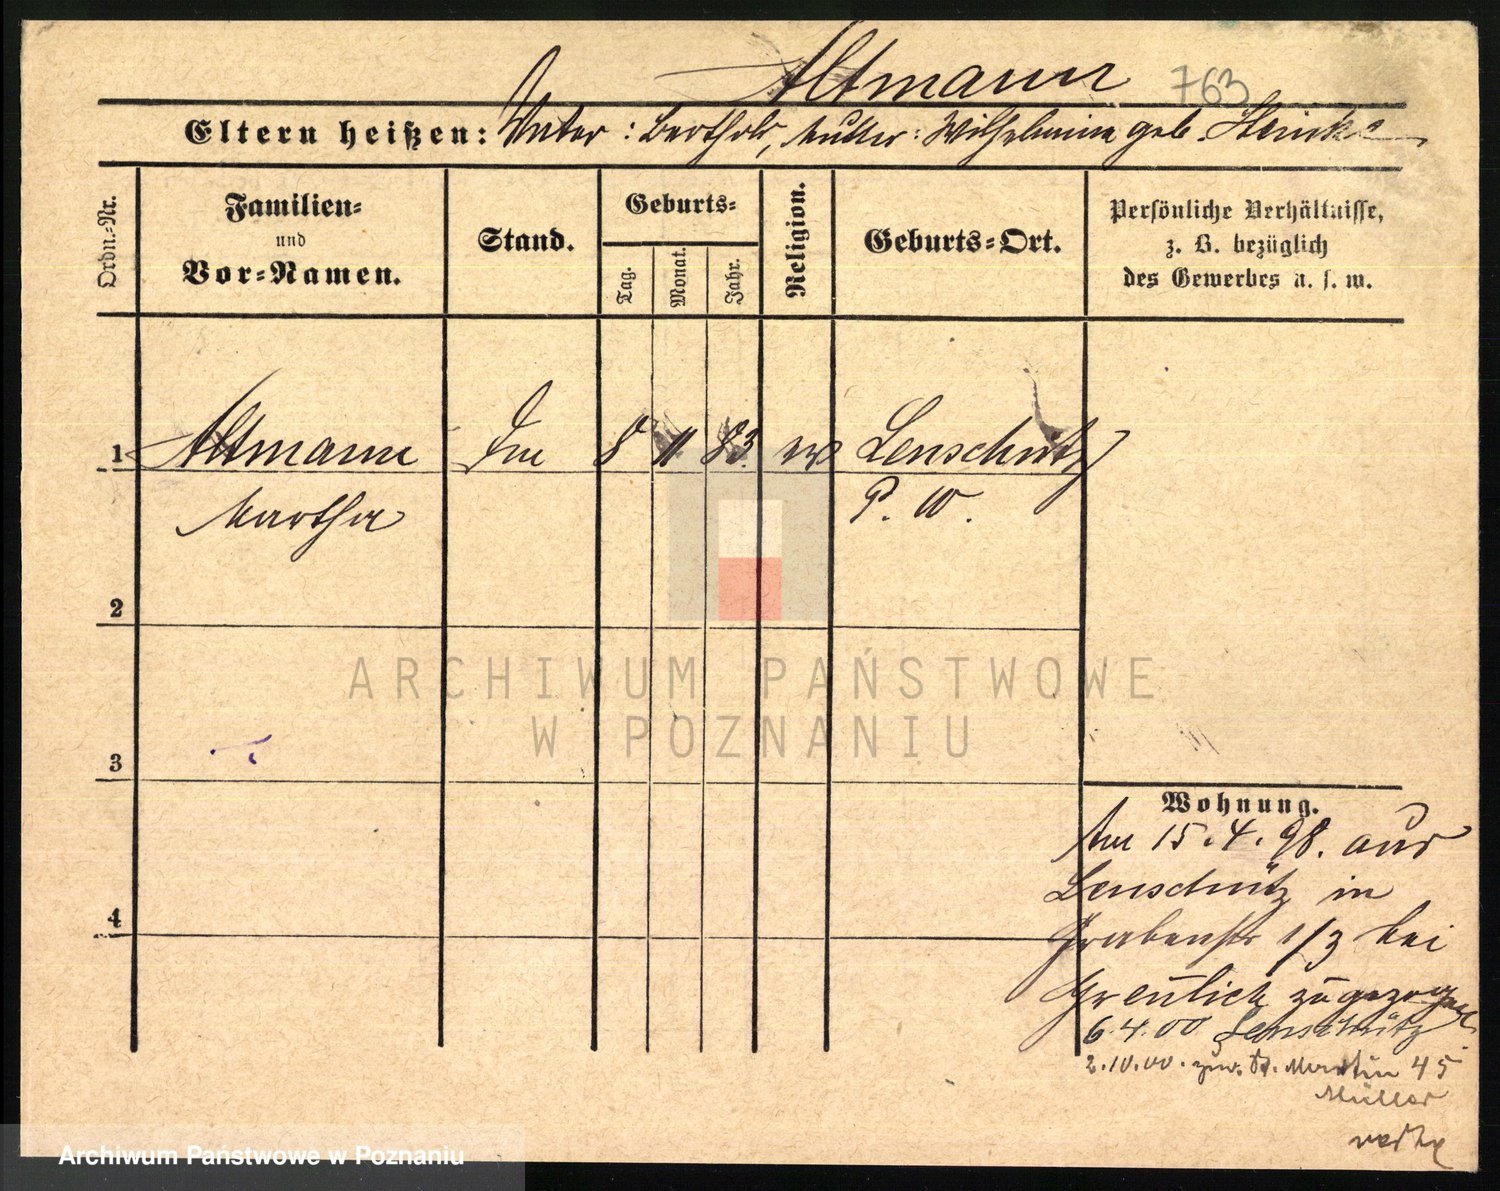 Altmann 763
Eltern heißen: Vater: Berthold, Mutter: Wilhelmine geb.
Ordn.-Nr.
Familien-
und
Vor-Namen.
Stand.
Geburts-
Tag.
Monat.
Jahr.
Religion.
Geburts-Ort.
Persönliche Verhältnisse,
z. B. bezüglich
des Gewerbes u. s. w.
1 Altmann 8 11 83 Lenschütz
Martha P. W.
2
3
4
ARCHIWUM PAŃSTWOWE
W POZNANIU
Wohnung.
Am 15.4.98. aus
Lenschütz in
Grabenstr 1/3 bei
Greulich zugezogen
6.4.00 Lenschütz
2.10.00. zur. St. Martin 45
Müller
Archiwum Państwowe w Poznaniu